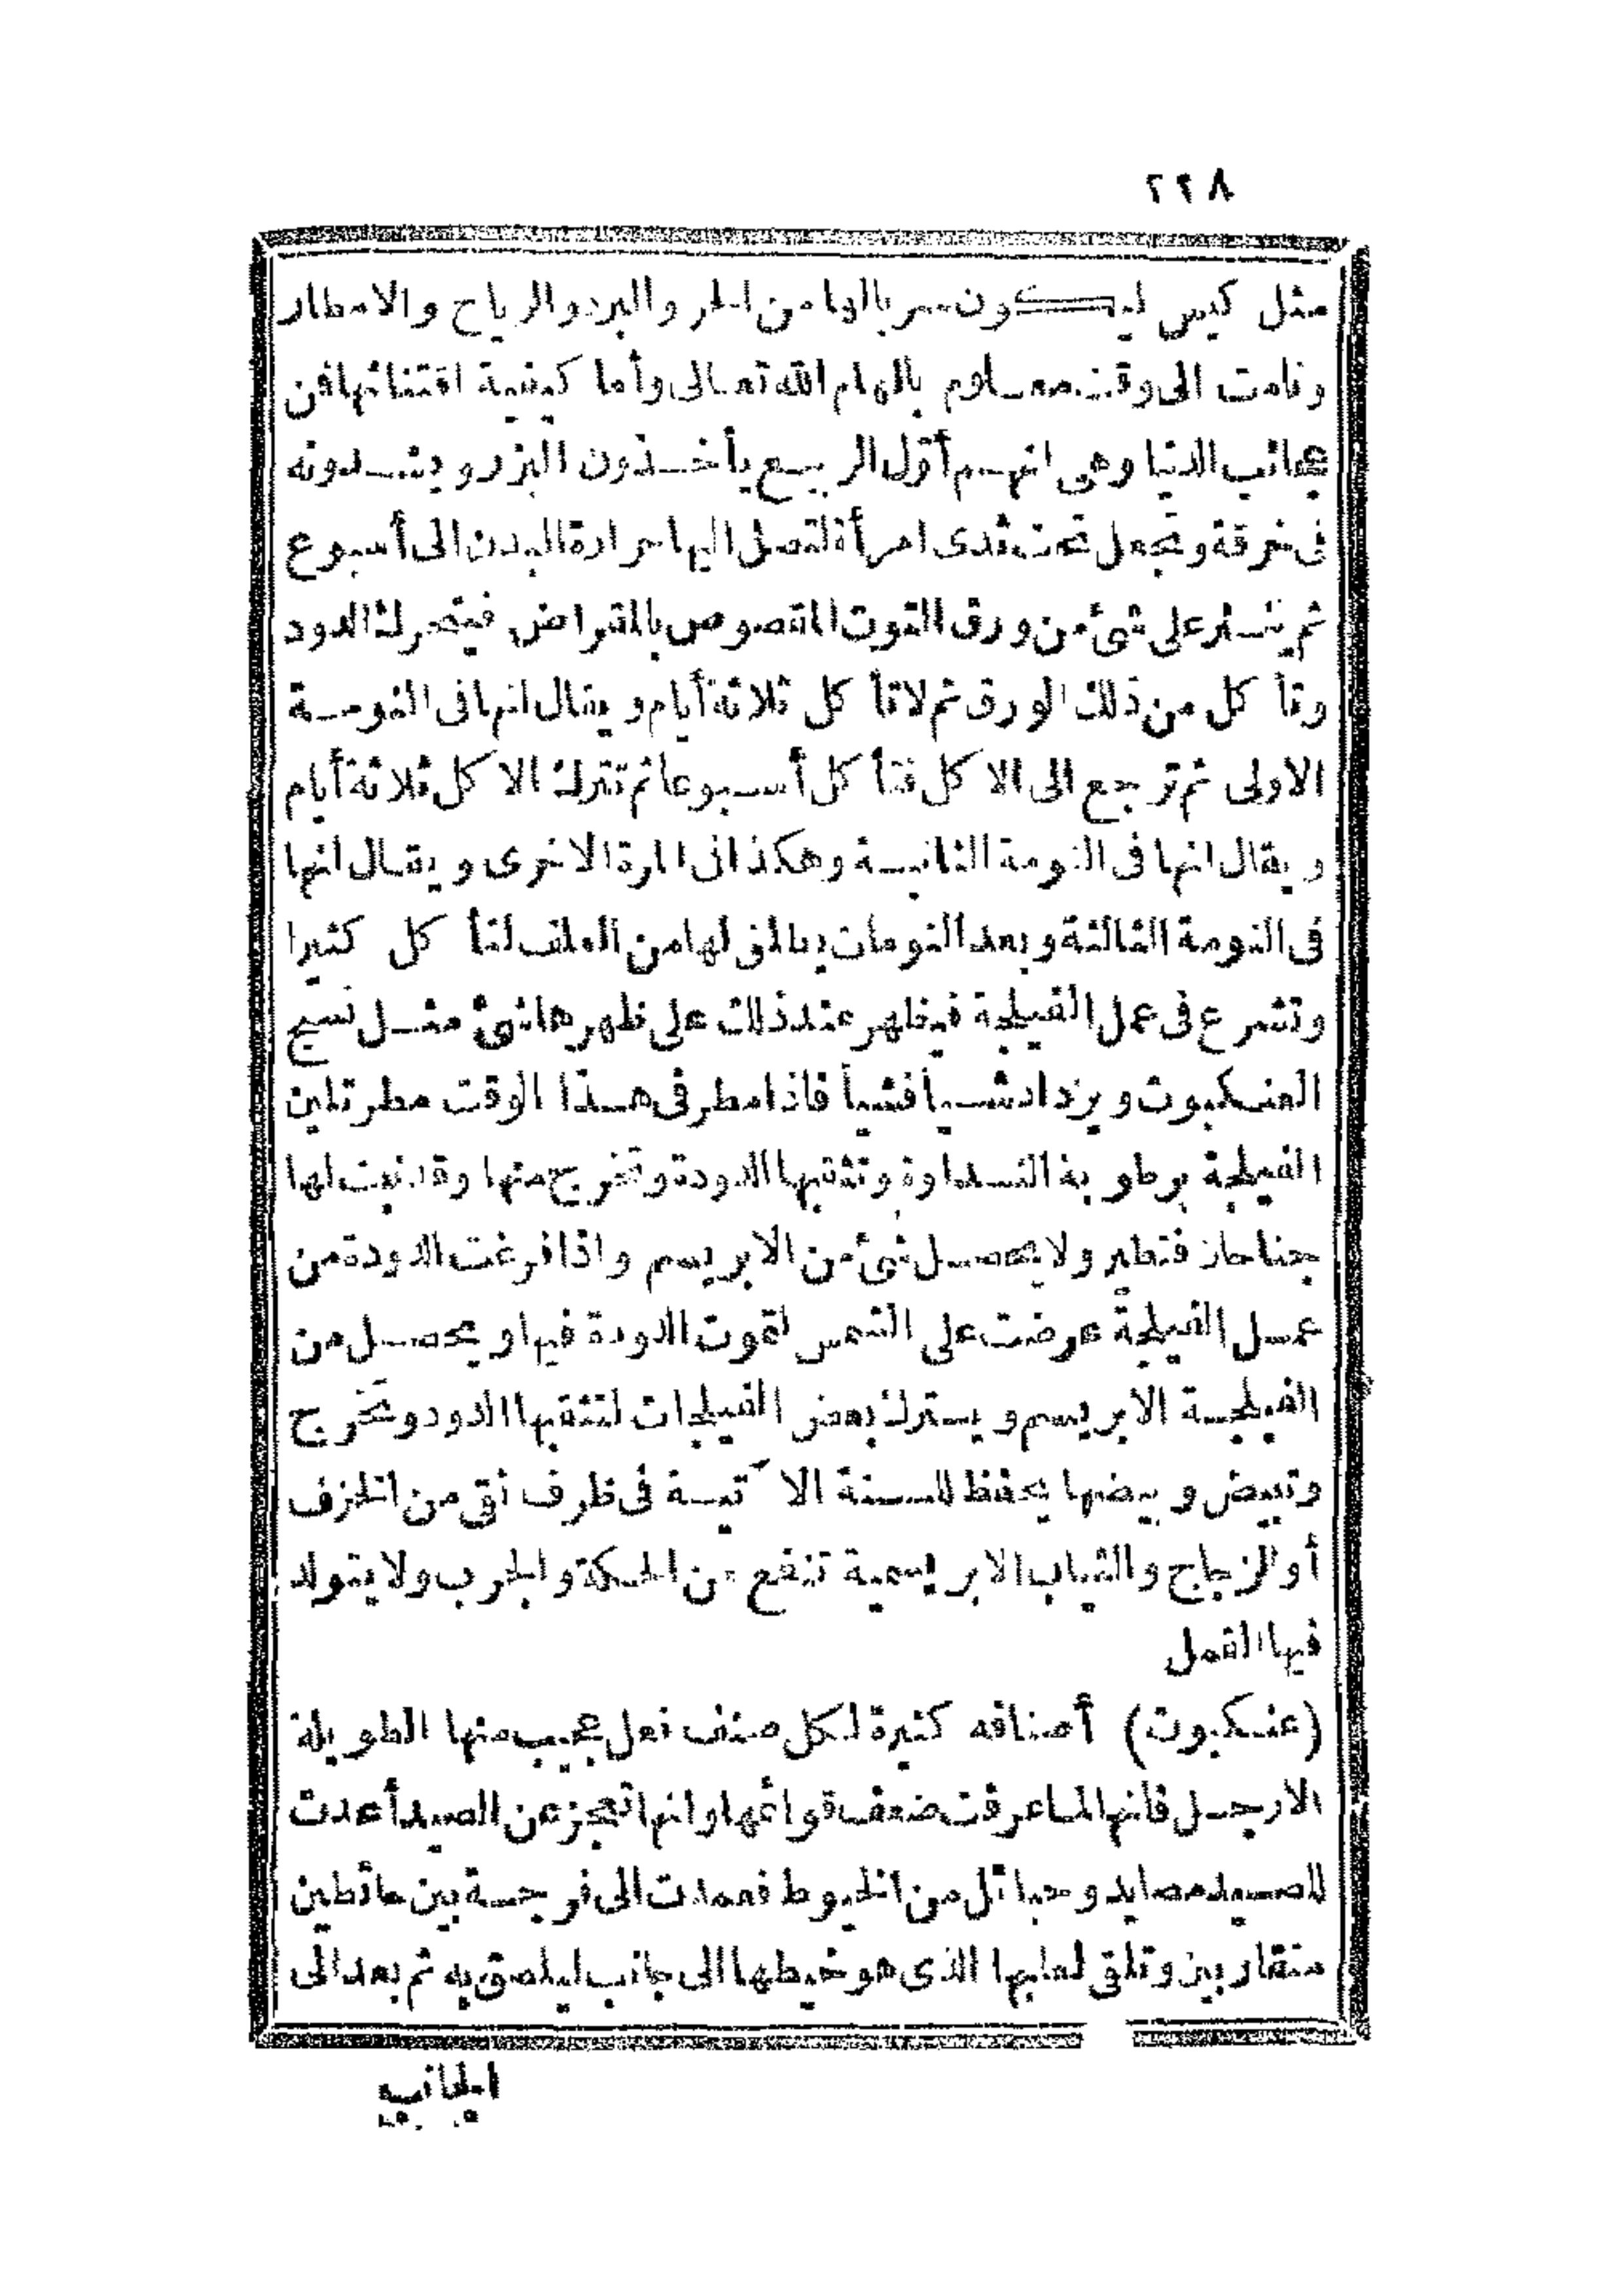 ٢٢٨
مثل كيس ليكون سربالها من الحر والبرد والرياح والامطار
ونامت الى وقت معلوم بالهام الله تعالى وأما كيفية اقتنائها فن
عجائب الدنيا وهى انهم أول الربيع يأخذون البزر ويشدونه
فى خرقة وتجعل تحت ثدى امرأة لتصل اليها حرارة البدن الى أسبوع
ثم ينثر على شئ من ورق التوت المقصوص بالمقراض فيتحرك الدود
وتأ كل من ذلك الورق ثم لا تأ كل ثلاثة أيام ويقال انها فى النومة
الاولى ثم ترجع الى الا كل فتأ كل أسبوعا ثم تترك الا كل ثلاثة أيام
ويقال انها فى النومة الثانية وهكذا فى المرة الاخرى ويقال انها
فى النومة الثالثة وبعد النومات يبالغ لها من العلف لتأ كل كثيرا
وتشرع فى عمل الفيلجة فيظهر عند ذلك على ظهرها شئ مثل نسج
العنكبوت ويزداد شيأ فشيأ فاذا مطر فى هذا الوقت مطر تلين
الفيلجة برطوبة النداوة وتثقبها الدودة وتخرج منها وقد نبت لها
جناحان فتطير ولا يحصل شئ من الابريسم واذا فرغت الدودة من
عمل الفيلجة عرضت على الشمس لتموت الدودة فيها ويحصل من
الفيلجة الابريسم ويترك بعض الفيلجات لتثقبها الدود وتخرج
وتبيض وبيضها يحفظ للسنة الآتية فى ظرف نقى من الخزف
أو الزجاج والثياب الابريسمية تنفع من الحكة والجرب ولا يتولد
فيها القمل
(عنكبوت) أصنافه كثيرة لكل صنف فعل عجيب منها الطويلة
الارجل فانها لما عرفت ضعف قوائمها وانها تعجز عن الصيد أعدت
للصيد مصايد وحبائل من الخيوط فعمدت الى فرجة بين حائطين
متقاربين وتلقى لعابها الذى هو خيطها الى جانب ليلصق به ثم بعد الى
الجانب